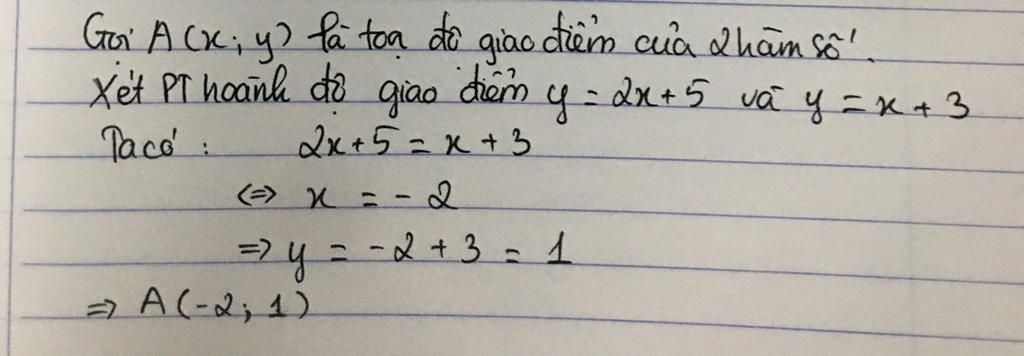 Gọi A(x; y) là tọa độ giao điểm của 2 hàm số.
Xét PT hoành độ giao điểm y = 2x + 5 và y = x + 3
Ta có : 2x + 5 = x + 3
<=> x = - 2
=> y = - 2 + 3 = 1
=> A(-2; 1)